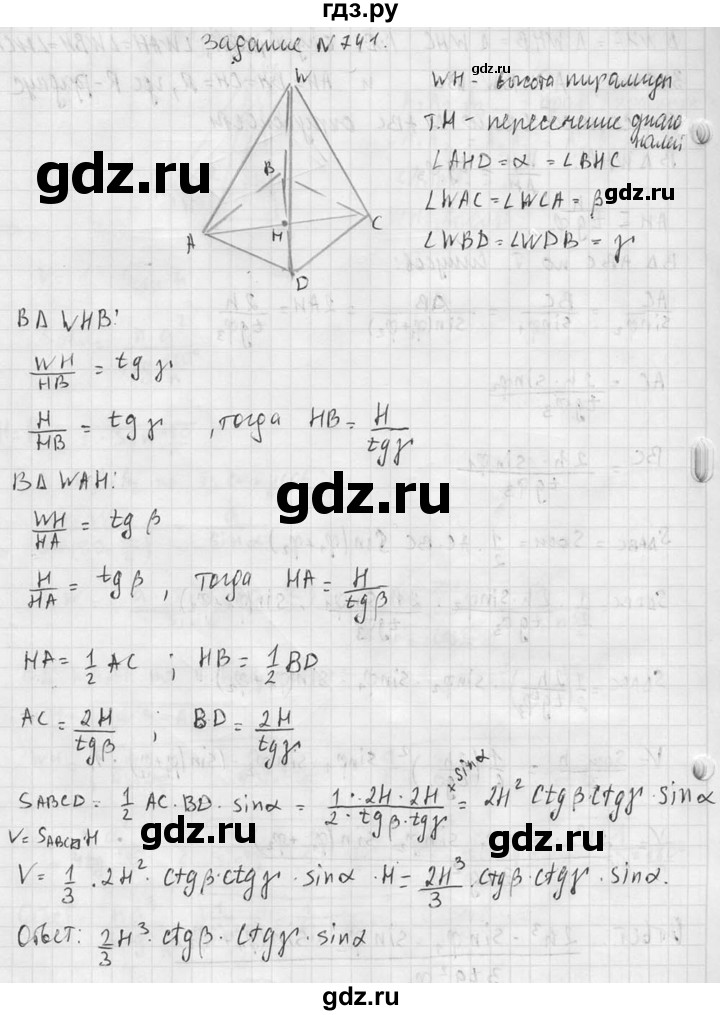 гдз.ру
Задание №741.
W
B
A
H
C
D
WH - высота пирамиды
т.H - пересечение диагоналей
∠AHD = α = ∠BHC
∠WAC = ∠WCA = β
∠WBD = ∠WDB = γ
gdz.ru
gdz.ru
В Δ WHB:
WH/HB = tg γ
H/HB = tg γ, тогда HB = H/tgγ
gdz.ru
gdz.ru
В Δ WAH:
WH/HA = tg β
gdz.ru
H/HA = tg β, тогда HA = H/tgβ
HA = 1/2 AC ; HB = 1/2 BD
gdz.ru
AC = 2H/tgβ ; BD = 2H/tgγ
SABCD = 1/2 AC·BD·sinα = 1·2H·2H/2·tgβ·tgγ × sinα = 2H² ctgβ·ctgγ·sinα
V = SABCD·H
gdz.ru
gdz.ru
V = 1/3 · 2H² · ctgβ·ctgγ · sinα · H = 2H³/3 · ctgβ·ctgγ · sinα.
Ответ: 2/3 H³ · ctgβ · ctgγ · sinα
gdz.ru
gdz.ru